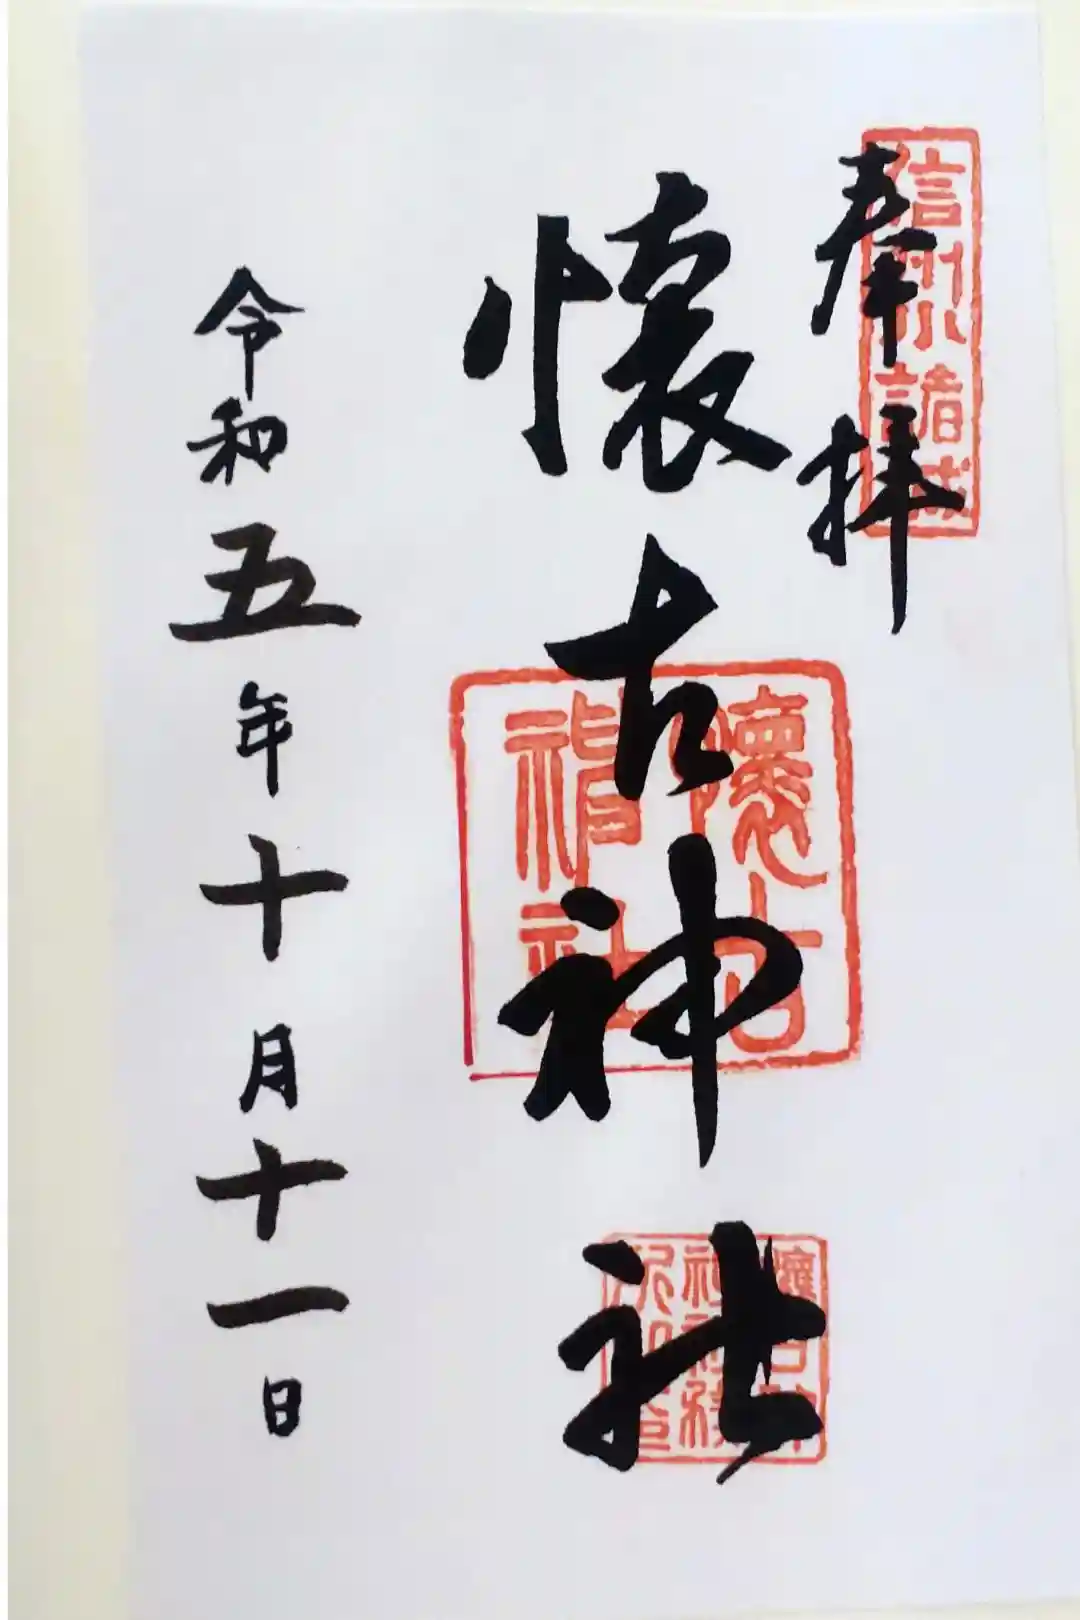 奉拝
信州小諸城
懐古神社
懐古
神社
懐古神
社社務
所之印
令和五年十月十一日